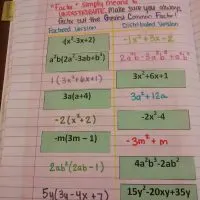 "Factor" simply means to
UNDISTRIBUTE. Make sure you always
factor out the Greatest Common Factor!
Factored Version Distributed Version
-(x²-3x+2) -x²+3x-2
a²b(2a²-3ab+b²)
1(3x²+6x+1) 3x²+6x+1
3a(a+4) 3a²+12a
-2(x²+2) -2x²-4
-m(3m – 1) -3m²+m
2ab²(2ab-1) 4a²b³-2ab²
5y(3y-4x+7) 15y²-20xy+35y